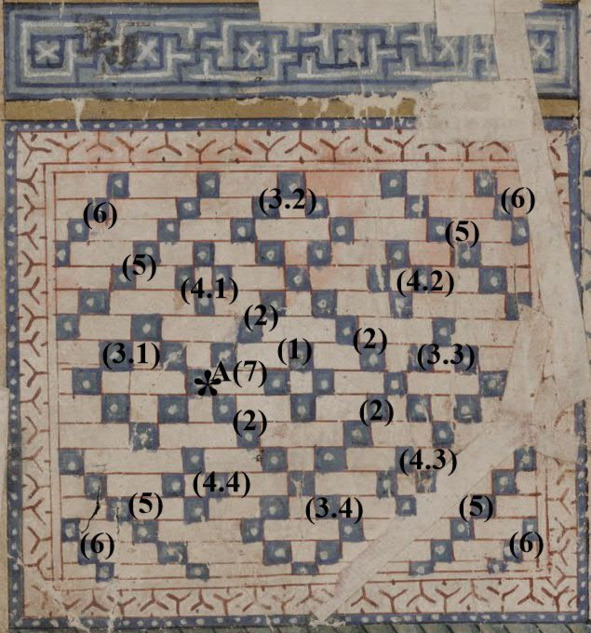 (6) (3.2) (6)
(5) (5)
(4.1) (4.2)
(2) (2)
(3.1) (1) (3.3)
*A(7)
(2) (2)
(4.4) (4.3)
(5) (3.4) (5)
(6) (6)